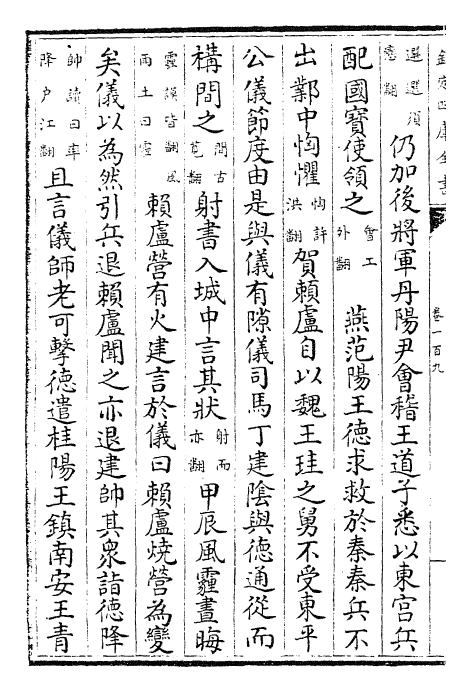 欽定四庫全書
卷一百九
選選須戀翻仍加後將軍丹陽尹會稽王道子悉以東宮兵
配國寶使領之會工外翻燕范陽王德求救於秦秦兵不
出鄴中恟懼恟許洪翻賀賴盧自以魏王珪之舅不受東平
公儀節度由是與儀有隙儀司馬丁建陰與德通從而
構間之間古莧翻射書入城中言其狀射而亦翻甲辰風霾晝晦
霾謨皆翻風雨土曰霾賴盧營有火建言於儀曰賴盧燒營為變
矣儀以為然引兵退賴盧聞之亦退建帥其眾詣德降
帥讀曰率降戶江翻且言儀師老可擊德遣桂陽王鎮南安王青